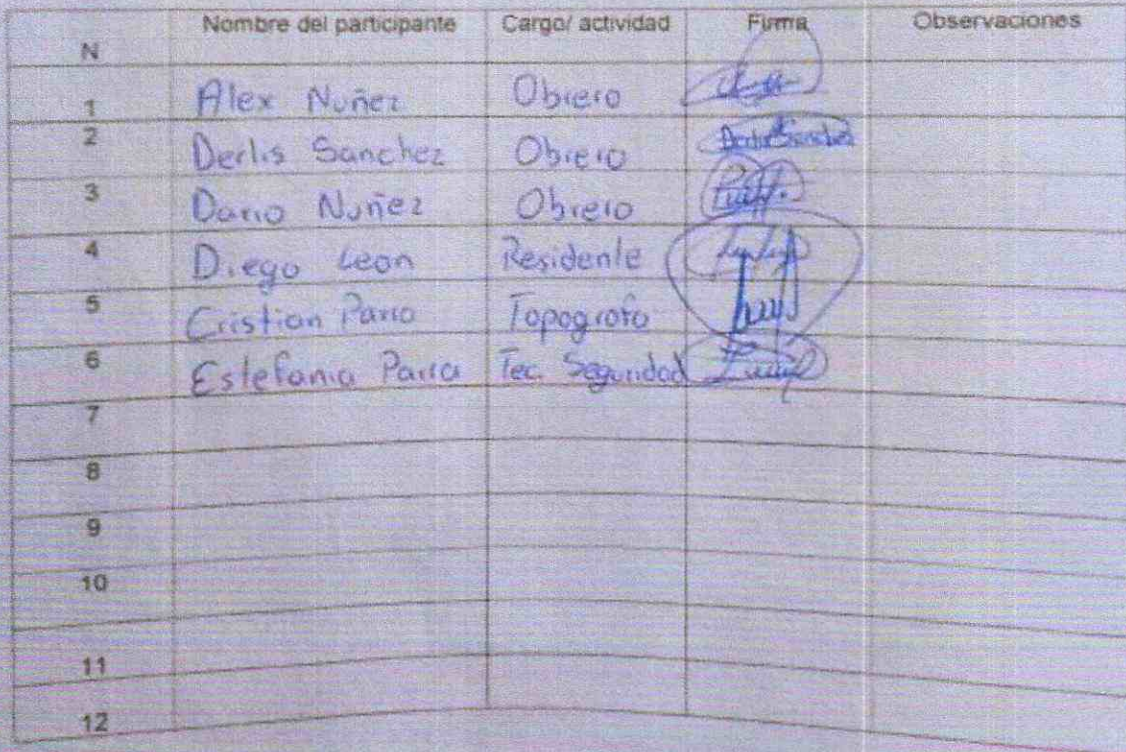 N Nombre del participante Cargo/ actividad Firma Observaciones
1 Alex Nuñez Obrero
2 Derlis Sanchez Obrero Derlis Sanchez
3 Dario Nuñez Obrero
4 Diego Leon Residente
5 Cristian Parra Topografo
6 Estefania Parra Tec. Seguridad
7
8
9
10
11
12